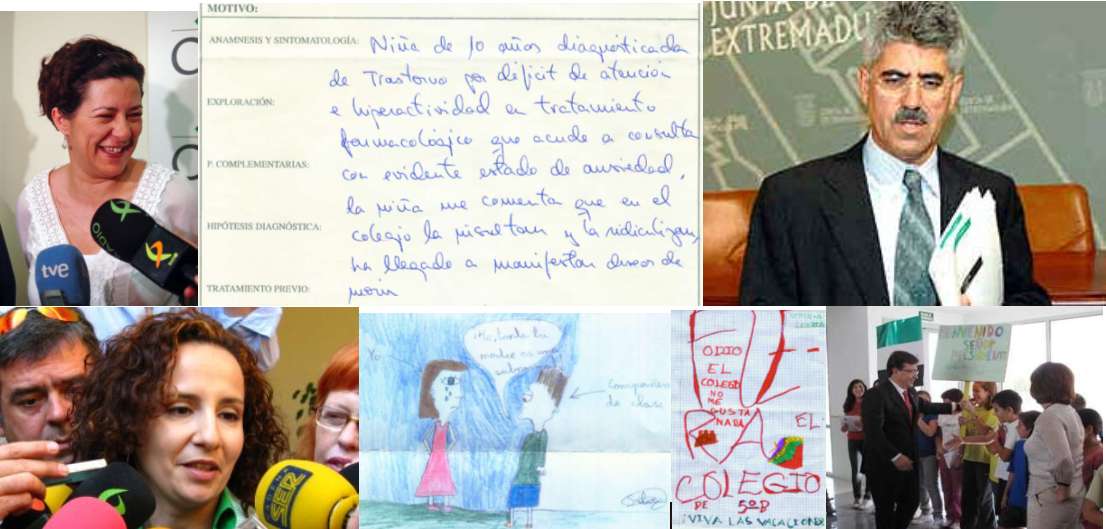 MOTIVO:
ANAMNESIS Y SINTOMATOLOGÍA: Niña de 10 años diagnosticada
de Trastorno por déficit de atención
EXPLORACIÓN: e hiperactividad en tratamiento
farmacológico que acude a consulta
P. COMPLEMENTARIAS: con evidente estado de ansiedad,
la niña me comenta que en el
HIPÓTESIS DIAGNÓSTICA: colegio la insultan y la ridiculizan,
ha llegado a manifestar deseos de
TRATAMIENTO PREVIO: morir
JUNTA DE
EXTREMADU
tve
SER
Yo
tonta la
madre es una
Compañera
de clase
ODIO
EL
COLEGIO
NO
ME
GUSTA
NADA
EL
COLEGIO
DE 5ºB
¡VIVA LAS VACACIONE
BIENVENIDO
SEÑOR